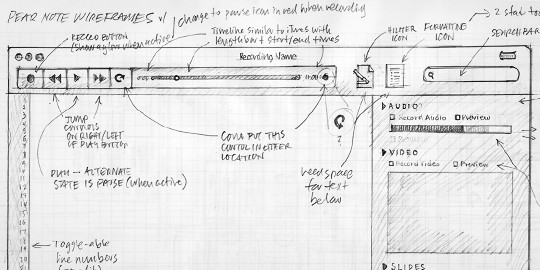 PEAR NOTE WIREFRAMES v1
change to pause icon in red when recording
RECORD BUTTON
(show as glow when active)
Timeline similar to iTunes with
length box + start/end times
HILITER
ICON
FORMATTING
ICON
→ 2 stat
SEARCH BAR
Recording Name
AUDIO
Record Audio
Preview
VIDEO
Record Video
Preview
SLIDES
JUMP
CONTROLS
ON RIGHT/LEFT
OF PLAY BUTTON
COULD PUT THIS
CONTROL IN EITHER
LOCATION
?
PLAY - ALTERNATE
STATE IS PAUSE (when active)
need space
for text
below
Toggle-able
line numbers